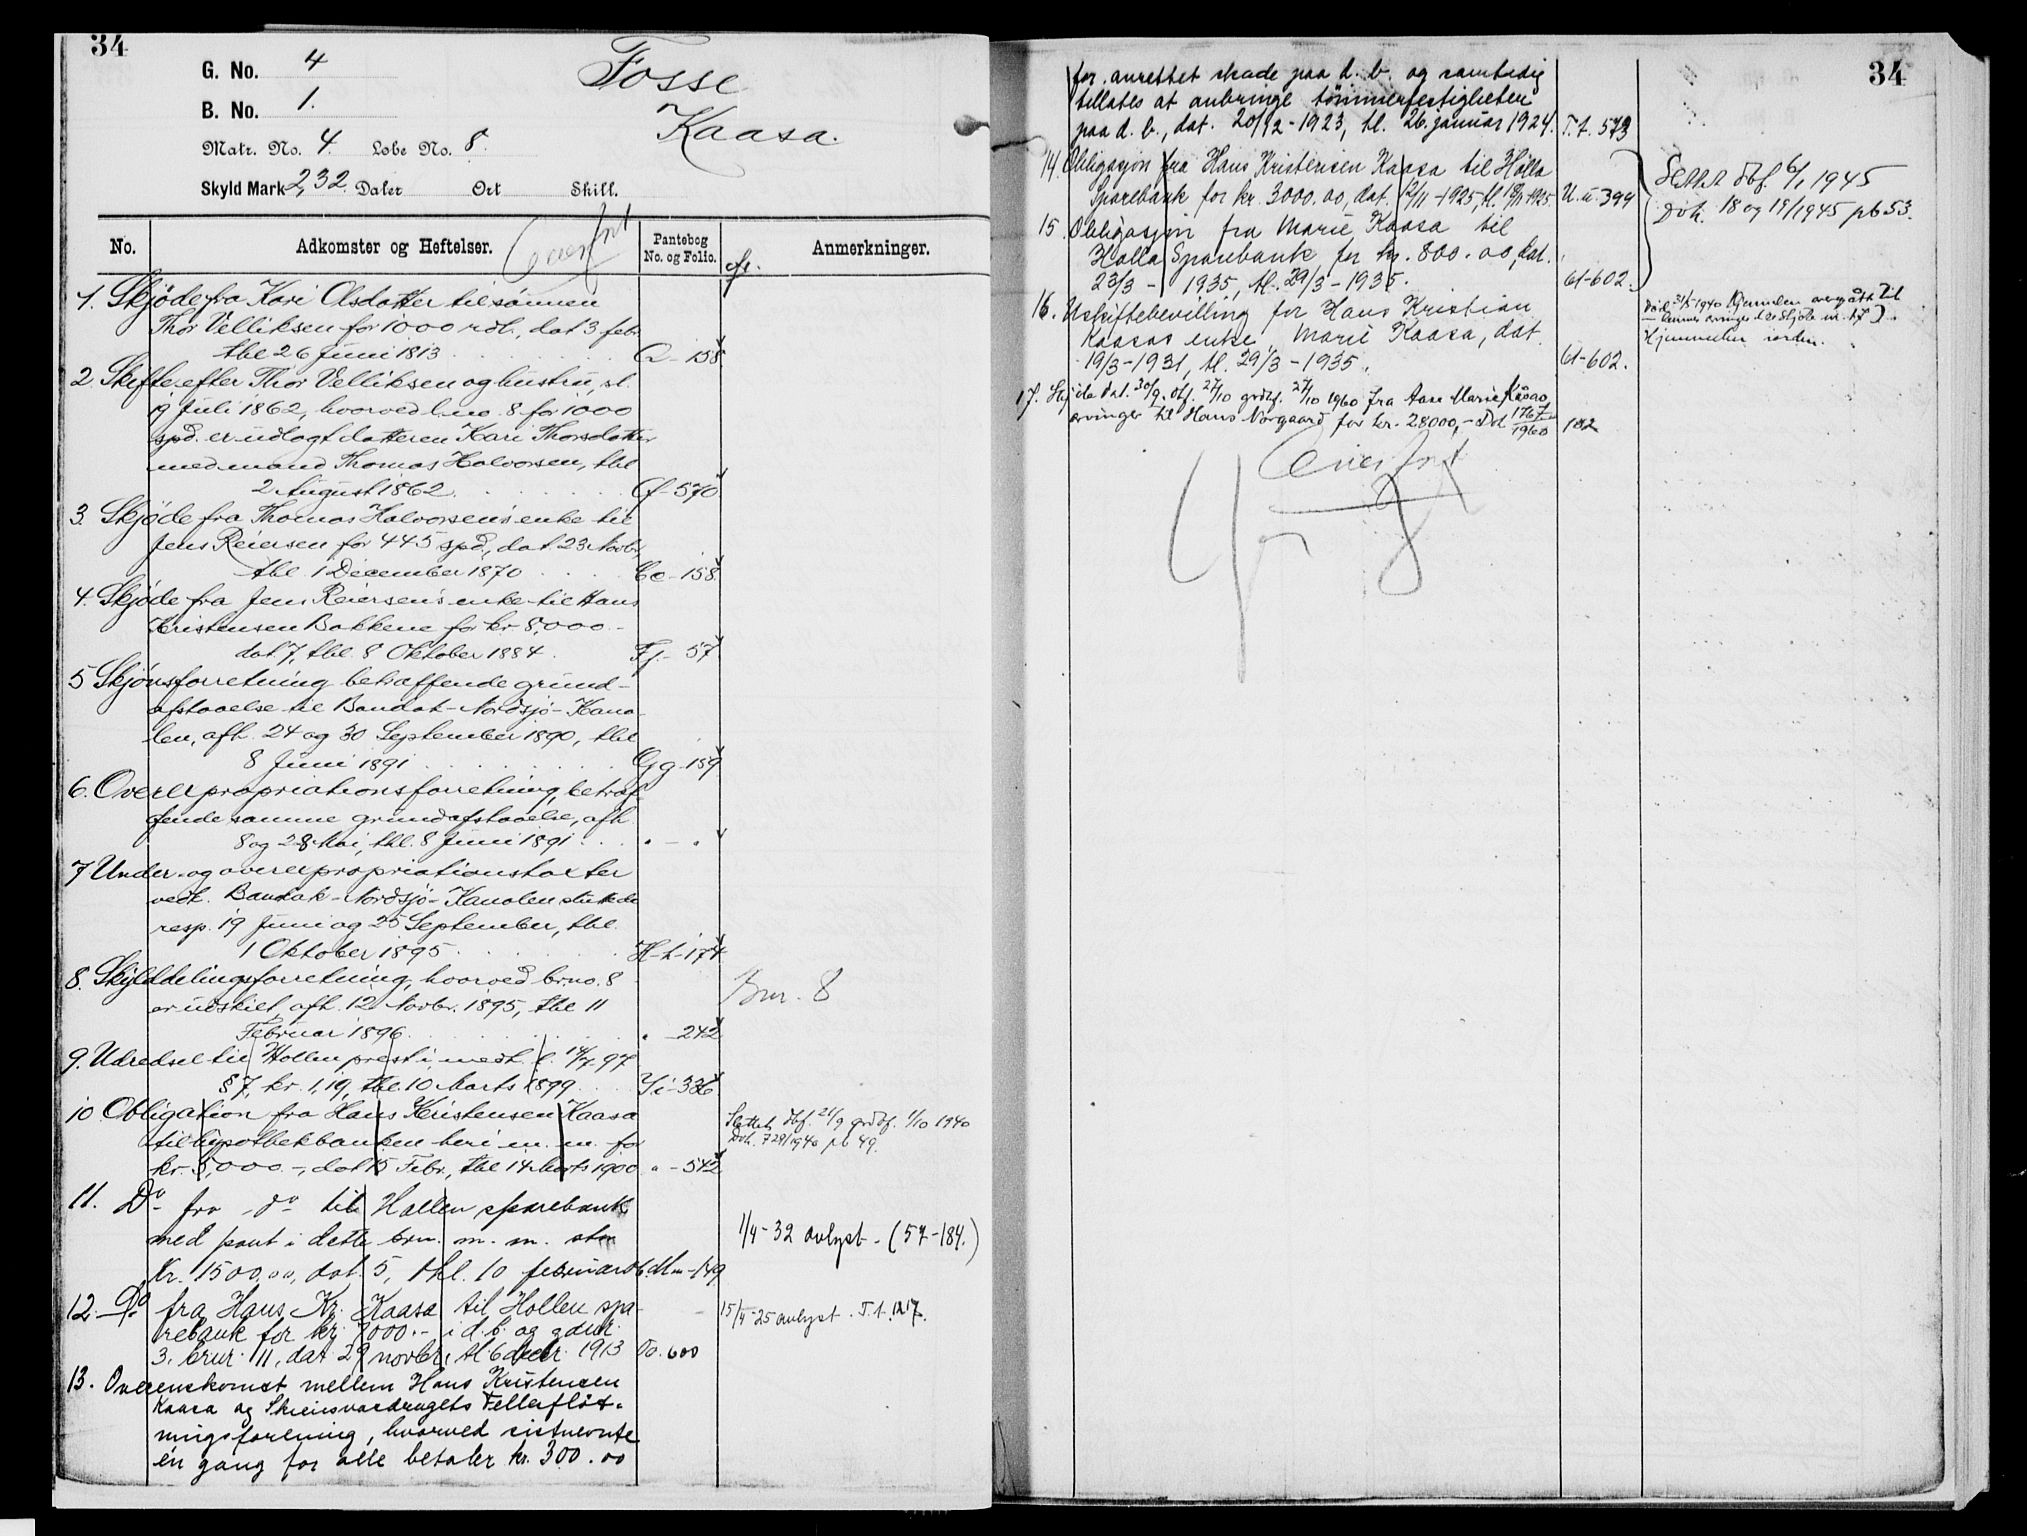 34
G. No. 4
Fosse
B. No. 1.
Kaasa.
Matr. No. 4. Løbe No. 8.
Skyld Mark 2,32 Daler Ort Skill.
No. Adkomster og Heftelser. Overført Pantebog No. og Folio. Anmerkninger.
1. Skjøde fra Kari Olsdatter til sønnen
Thor Velliksen for 1000 rdl., dat 3 febr.
thl 26 Juni 1813. Q-158
2 Skifte efter Thor Velliksen og hustru, sl.
19 Juli 1862, hvorved l.no. 8 for 1000
spd. er udlagt datteren Kari Thorsdatter
med mand Thomas Halvorsen, thl
2 August 1862. Cf-570
3. Skjøde fra Thomas Halvorsen's enke til
Jens Reiersen for 445 spd, dat 23 Novbr,
thl. 1 December 1870 Cc-158
4. Skjøde fra Jens Reiersen's enke til Hans
Kristensen Bakkene for kr 8,000 -
dat 7, thl. 8 Oktober 1884. Ff-57
5 Skjønsforretning betræffende grund-
afstaaelse til Bandak-Nordsjø-Kana-
len, afh. 24 og 30 September 1890, thl
8 Juni 1891 Gg-159
6. Overexpropriationsforretning betræf-
fende samme grundafstaaelse, afh
8 og 28 Mai, thl. 8 Juni 1891. " - "
7 Under- og overexpropriationstaxter
vedk. Bandak-Nordsjø-Kanalen sluttede
resp. 19 Juni og 25 September, thl.
1 Oktober 1895 H-h-174
8. Skylddelingsforretning, hvorved brno. 8
er udskilt, afh. 12 Novbr. 1895, thl 11
Februar 1896 " - 242
Bnr. 8
9. Udredsel til Hollen presti, medh. l. 14/7-97
§ 7, kr. 1,19, thl 10 Marts 1899 Ii-336
10 Obligation fra Hans Kristensen Kaasa
til hypothekbanken heri m. m. for
kr. 5,000 -, dat 15 Febr., thl 14 Marts 1900 " - 542
Slettet dbf. 21/9 grdbf. 1/10 1940
Dok. 729/1940 pb 49.
11. Do fra do til Hollen sparebank
med pant i dette brn. m. m. stor
Kr. 1500,00, dat. 5, thl. 10 februar 06. Mm-149
1/4-32 avlyst - (57-184.)
12. Do fra Hans Kr. Kaasa til Hollen spa-
rebank for kr. 7000.- i d. b. og gdnr.
3. brnr. 11, dat 29 novbr, tl 6 decbr. 1913 Oo. 600
15/4-25 avlyst. T.t. 1217.
13. Overenskomst mellem Hans Kristensen
Kaasa og Skiensvasdragets Fellesfløt-
ningsforening, hvorved sistnevnte
én gang for alle betaler kr. 300.00
34
for anrettet skade paa d. b. og samtidig
tillates at anbringe tømmerfestigheter
paa d. b., dat. 20/12-1923, tl. 26. januar 1924. T.t. 573
14. Obligasjon fra Hans Kristensen Kaasa til Holla
Sparebank for kr. 3000.00, dat. 12/11-1925, tl. 18/11-1925. U.u. 394
Slettet dbf. 6/1 1945
Dok. 18 og 19/1945 pb 53.
15. Obligasjon fra Marie Kaasa til
Holla Sparebank for kr. 800.00, dat.
23/3 - 1935, tl. 29/3-1935. 61-602.
16. Uskiftebevilling for Hans Kristian
Kaasas enke, Marie Kaasa, dat.
19/3-1931, tl. 29/3-1935. 61-602.
Hjemmelen overgått til
Hjemmelen i orden.
17. Skjøte dat. 30/9. dbf. 27/10 grdbf. 27/10 1960 fra Aase Marie Kåsas
arvinger til Hans Norgaard for kr. 28000,- Dok 1767/1960 182
Overført